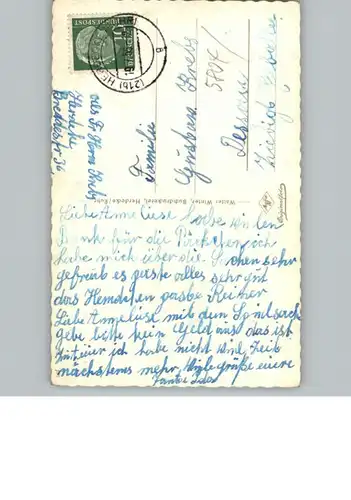 DEUTSCHE BUNDESPOST
10
(21b)
Familie
Gustav Krebs
Dessau
5804/
Walter Winter, Buchdruckerei, Herdecke/Ruhr
Liebe Anneliese habe vielen
Dank für die Päckchen ich
habe mich über die Sachen sehr
gefreut es paste alles sehr gut
das Hemdchen paste Reiner
Liebe Anneliese mit dem Spielsach
gebe bitte kein Geld aus das ist
zu teuer ich habe nicht viel Zeit
nächstens mehr. Viele grüße euere
Tante Ida